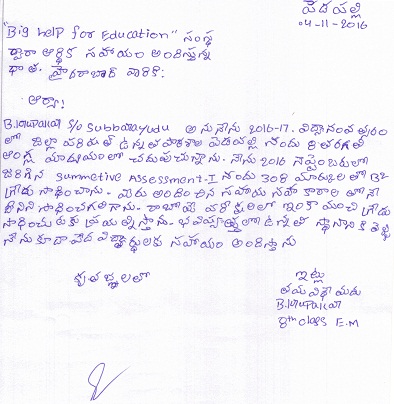 పెదపల్లి
04-11-2016
"Big help for Education" సంస్థ
ద్వారా ఆర్థిక సహాయం అందిస్తున్న
దాత. హైదరాబాద్ వారికి:
ఆర్యా!
B. S/o Subbarayudu అను నేను 2016-17. విద్యా సంవత్సరం
లో జిల్లా పరిషత్ ఉన్నత పాఠశాల పెదపల్లి నందు 8 తరగతి
ఆంగ్ల మాధ్యమంలో చదువుచున్నాను. నేను 2016 సెప్టెంబరులో
జరిగిన Summative Assessment-I నందు 308 మార్కులతో B2
గ్రేడు సాధించాను. మీరు అందించిన సహాయ సహకారాలతోనే
దీనిని సాధించగలిగాను. రాబోయే పరీక్షలలో ఇంకా మంచి గ్రేడు
సాధించుటకు ప్రయత్నిస్తాను. భవిష్యత్తులో ఉన్నత స్థానానికి వెళ్ళి
నేను కూడా పేద విద్యార్థులకు సహాయం అందిస్తాను
కృతజ్ఞతలతో
ఇట్లు
తమ విధేయుడు
B.
8th class E.M